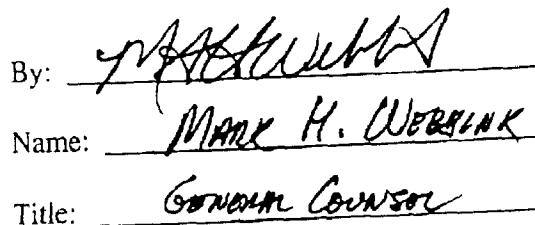 By:
Name: MARK H. WEBBINK
Title: GENERAL COUNSEL